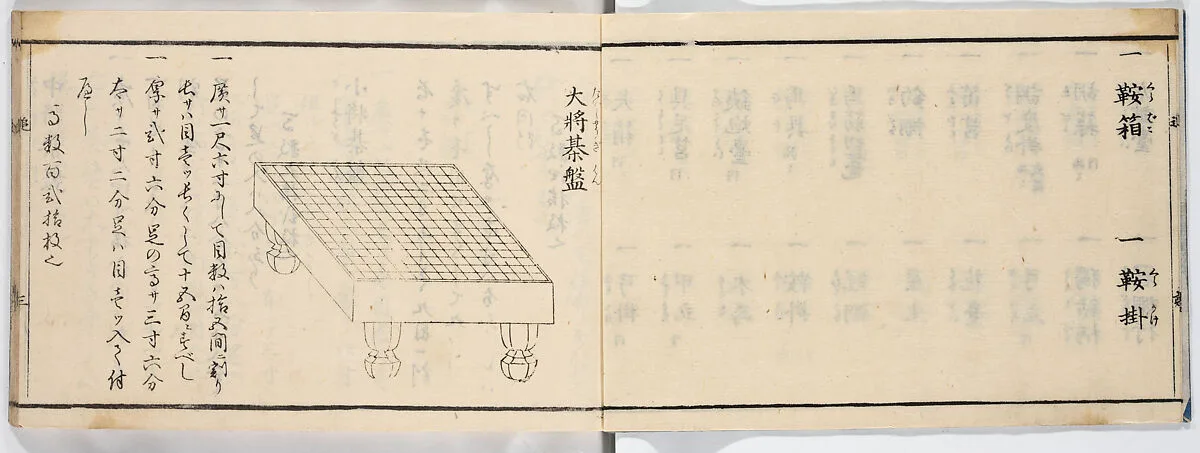 一 鞍箱 一 鞍掛
大將棊盤
一 廣サ一尺六寸にして目数ハ拾五間ニ割り
長サハ目壱ツ長くして十五間ニすべし
一 厚サ弐寸六分足の高サ三寸六分
太サ二寸二分足ハ目壱ツ入て付
べし
馬数百弐拾枚也